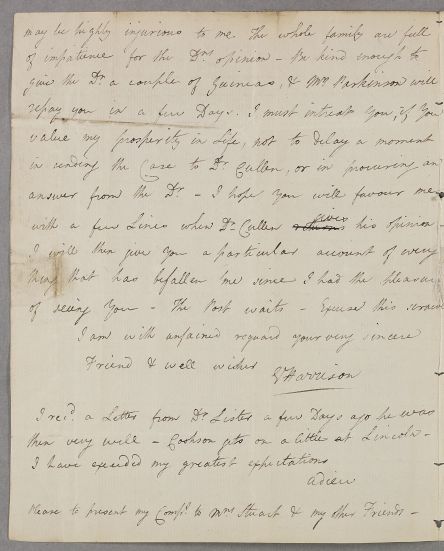 may be highly injurious to me. The whole family are full
of impatience for the Drs opinion – Be kind enough to
give the Dr. a couple of Guineas, & Mr Parkinson will
repay you in a few Days. I must intreat You, if You
value my prosperity in Life, not to delay a moment
in sending the Case to Dr. Cullen, or in procuring an
answer from the Dr – I hope You will favour me
with a few Lines when Dr Cullen returns gives his opinion
I will then give You a particular account of every
thing that has befallen me since I had the pleasure
of seeing You – The Post waits – Excuse this
I am with unfained reguard your very sincere
Friend & well wisher
Harrison
I recd. a Letter from Dr Lister a few Days ago he was
then very well – Cookson gets on a little at Lincoln –
I have exceeded my greatest expectations
adieu
Please to present my Compts. to Mrs Stuart & my other Friends –